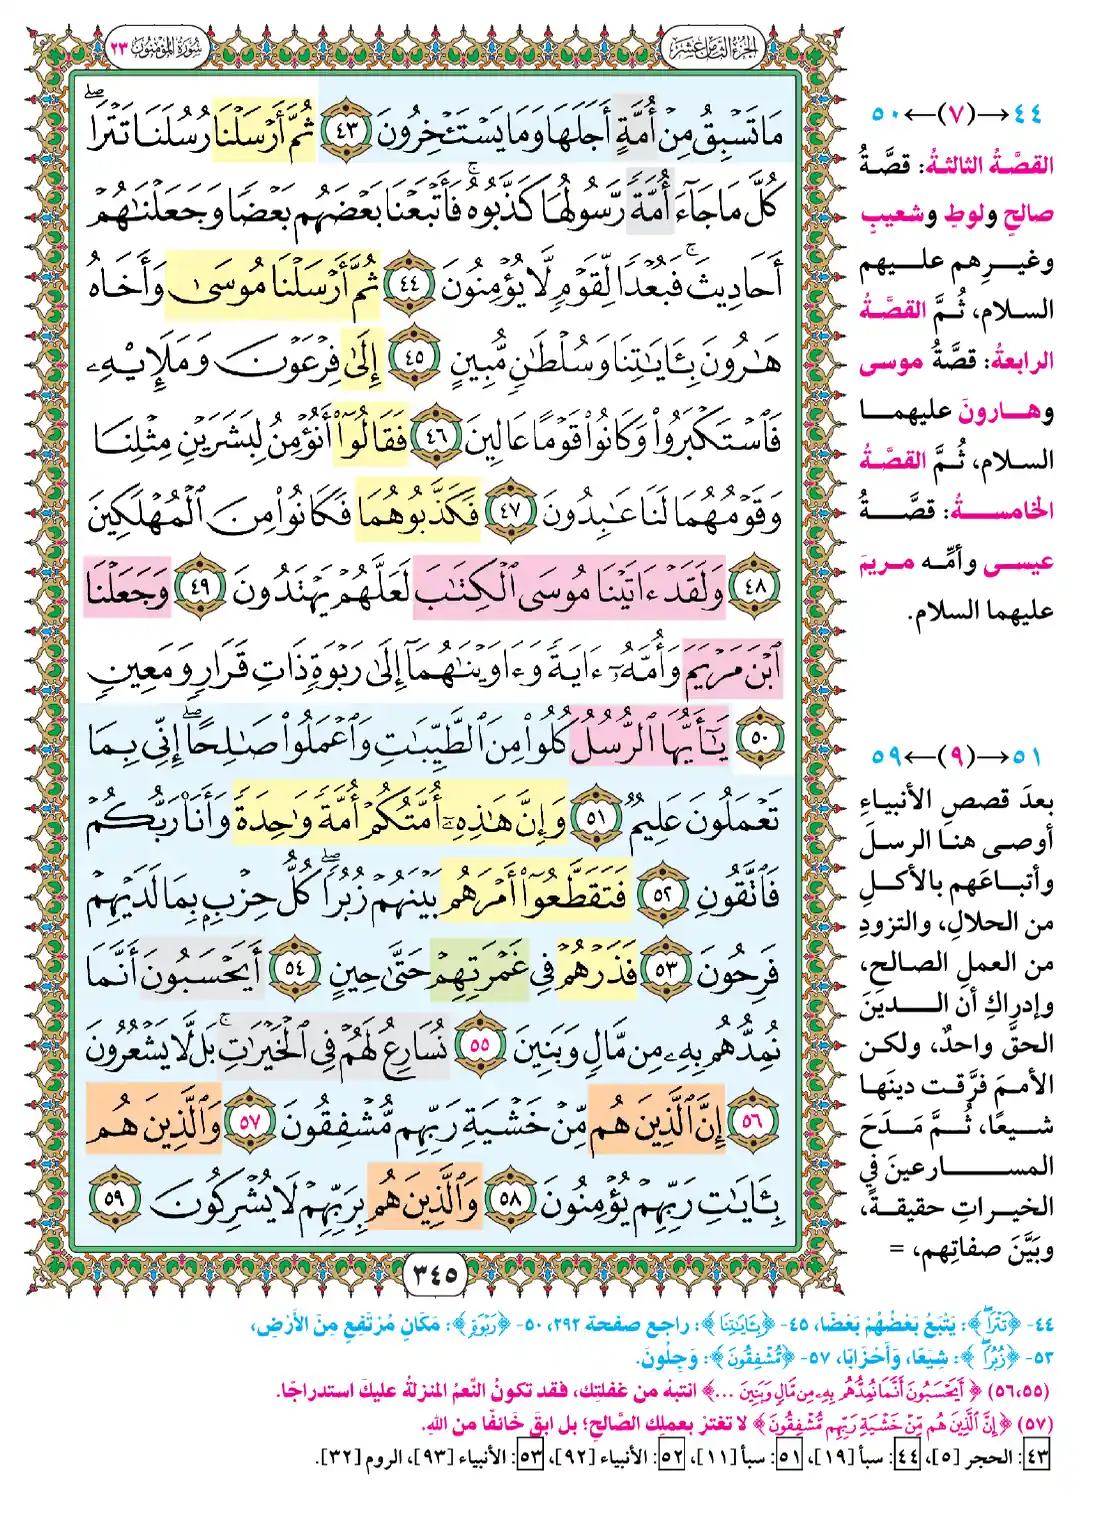 الجزء الثامن عشر
سورة المؤمنون ٢٣
مَا تَسۡبِقُ مِنۡ أُمَّةٍ أَجَلَهَا وَمَا يَسۡتَـٔۡخِرُونَ ٤٣ ثُمَّ أَرۡسَلۡنَا رُسُلَنَا تَتۡرَاۖ
كُلَّ مَا جَآءَ أُمَّةٗ رَّسُولُهَا كَذَّبُوهُۚ فَأَتۡبَعۡنَا بَعۡضَهُم بَعۡضٗا وَجَعَلۡنَٰهُمۡ
أَحَادِيثَۚ فَبُعۡدٗا لِّقَوۡمٖ لَّا يُؤۡمِنُونَ ٤٤ ثُمَّ أَرۡسَلۡنَا مُوسَىٰ وَأَخَاهُ
هَٰرُونَ بِـَٔايَٰتِنَا وَسُلۡطَٰنٖ مُّبِينٍ ٤٥ إِلَىٰ فِرۡعَوۡنَ وَمَلَإِيْهِۦ
فَٱسۡتَكۡبَرُواْ وَكَانُواْ قَوۡمًا عَالِينَ ٤٦ فَقَالُوٓاْ أَنُؤۡمِنُ لِبَشَرَيۡنِ مِثۡلِنَا
وَقَوۡمُهُمَا لَنَا عَٰبِدُونَ ٤٧ فَكَذَّبُوهُمَا فَكَانُواْ مِنَ ٱلۡمُهۡلَكِينَ
٤٨ وَلَقَدۡ ءَاتَيۡنَا مُوسَى ٱلۡكِتَٰبَ لَعَلَّهُمۡ يَهۡتَدُونَ ٤٩ وَجَعَلۡنَا
ٱبۡنَ مَرۡيَمَ وَأُمَّهُۥٓ ءَايَةٗ وَءَاوَيۡنَٰهُمَآ إِلَىٰ رَبۡوَةٖ ذَاتِ قَرَارٖ وَمَعِينٖ
٥٠ يَٰٓأَيُّهَا ٱلرُّسُلُ كُلُواْ مِنَ ٱلطَّيِّبَٰتِ وَٱعۡمَلُواْ صَٰلِحًاۖ إِنِّي بِمَا
تَعۡمَلُونَ عَلِيمٞ ٥١ وَإِنَّ هَٰذِهِۦٓ أُمَّتُكُمۡ أُمَّةٗ وَٰحِدَةٗ وَأَنَا۠ رَبُّكُمۡ
فَٱتَّقُونِ ٥٢ فَتَقَطَّعُوٓاْ أَمۡرَهُم بَيۡنَهُمۡ زُبُرٗاۖ كُلُّ حِزۡبِۭ بِمَا لَدَيۡهِمۡ
فَرِحُونَ ٥٣ فَذَرۡهُمۡ فِي غَمۡرَتِهِمۡ حَتَّىٰ حِينٍ ٥٤ أَيَحۡسَبُونَ أَنَّمَا
نُمِدُّهُم بِهِۦ مِن مَّالٖ وَبَنِينَ ٥٥ نُسَارِعُ لَهُمۡ فِي ٱلۡخَيۡرَٰتِۚ بَل لَّا يَشۡعُرُونَ
٥٦ إِنَّ ٱلَّذِينَ هُم مِّنۡ خَشۡيَةِ رَبِّهِم مُّشۡفِقُونَ ٥٧ وَٱلَّذِينَ هُم
بِـَٔايَٰتِ رَبِّهِمۡ يُؤۡمِنُونَ ٥٨ وَٱلَّذِينَ هُم بِرَبِّهِمۡ لَا يُشۡرِكُونَ ٥٩
٣٤٥
٤٤→(٧)←٥٠
القصَّةُ الثالثةُ: قصَّةُ
صالحٍ ولوطٍ وشعيبٍ
وغيرِهم عليهم
السلام، ثُمَّ القصَّةُ
الرابعةُ: قصَّةُ موسى
وهارونَ عليهما
السلام، ثُمَّ القصَّةُ
الخامسةُ: قصَّةُ
عيسى وأمِّه مريمَ
عليهما السلام.
٥١→(٩)←٥٩
بعدَ قصصِ الأنبياءِ
أوصى هنا الرسلَ
وأتباعَهم بالأكلِ
من الحلالِ، والتزودِ
من العملِ الصالحِ،
وإدراكِ أن الدينَ
الحقَّ واحدٌ، ولكن
الأممَ فرَّقت دينَها
شيعًا، ثُمَّ مَدَحَ
المسارعينَ في
الخيراتِ حقيقةً،
وبَيَّنَ صفاتِهم، =
٤٤- ﴿تَتۡرَاۖ﴾: يَتْبَعُ بَعْضُهُمْ بَعْضًا، ٤٥- ﴿بِـَٔايَٰتِنَا﴾: راجع صفحة ٢٩٢، ٥٠- ﴿رَبۡوَةٖ﴾: مَكَانٍ مُرْتَفِعٍ مِنَ الأَرْضِ،
٥٣- ﴿زُبُرٗاۖ﴾: شِيَعًا، وَأَحْزَابًا، ٥٧- ﴿مُّشۡفِقُونَ﴾: وَجِلُونَ.
(٥٦،٥٥) ﴿أَيَحۡسَبُونَ أَنَّمَا نُمِدُّهُم بِهِۦ مِن مَّالٖ وَبَنِينَ ...﴾ انتبهْ من غفلتِك، فقد تكونُ النِّعمُ المنزلةُ عليكَ استدراجًا.
(٥٧) ﴿إِنَّ ٱلَّذِينَ هُم مِّنۡ خَشۡيَةِ رَبِّهِم مُّشۡفِقُونَ﴾ لا تغترَ بعملِك الصَّالحِ؛ بل ابقَ خَائفًا من اللهِ.
٤٣: الحجر [٥]، ٤٤: سبأ [١٩]، ٥١: سبأ [١١]، ٥٢: الأنبياء [٩٢]، ٥٣: الأنبياء [٩٣]، الروم [٣٢].